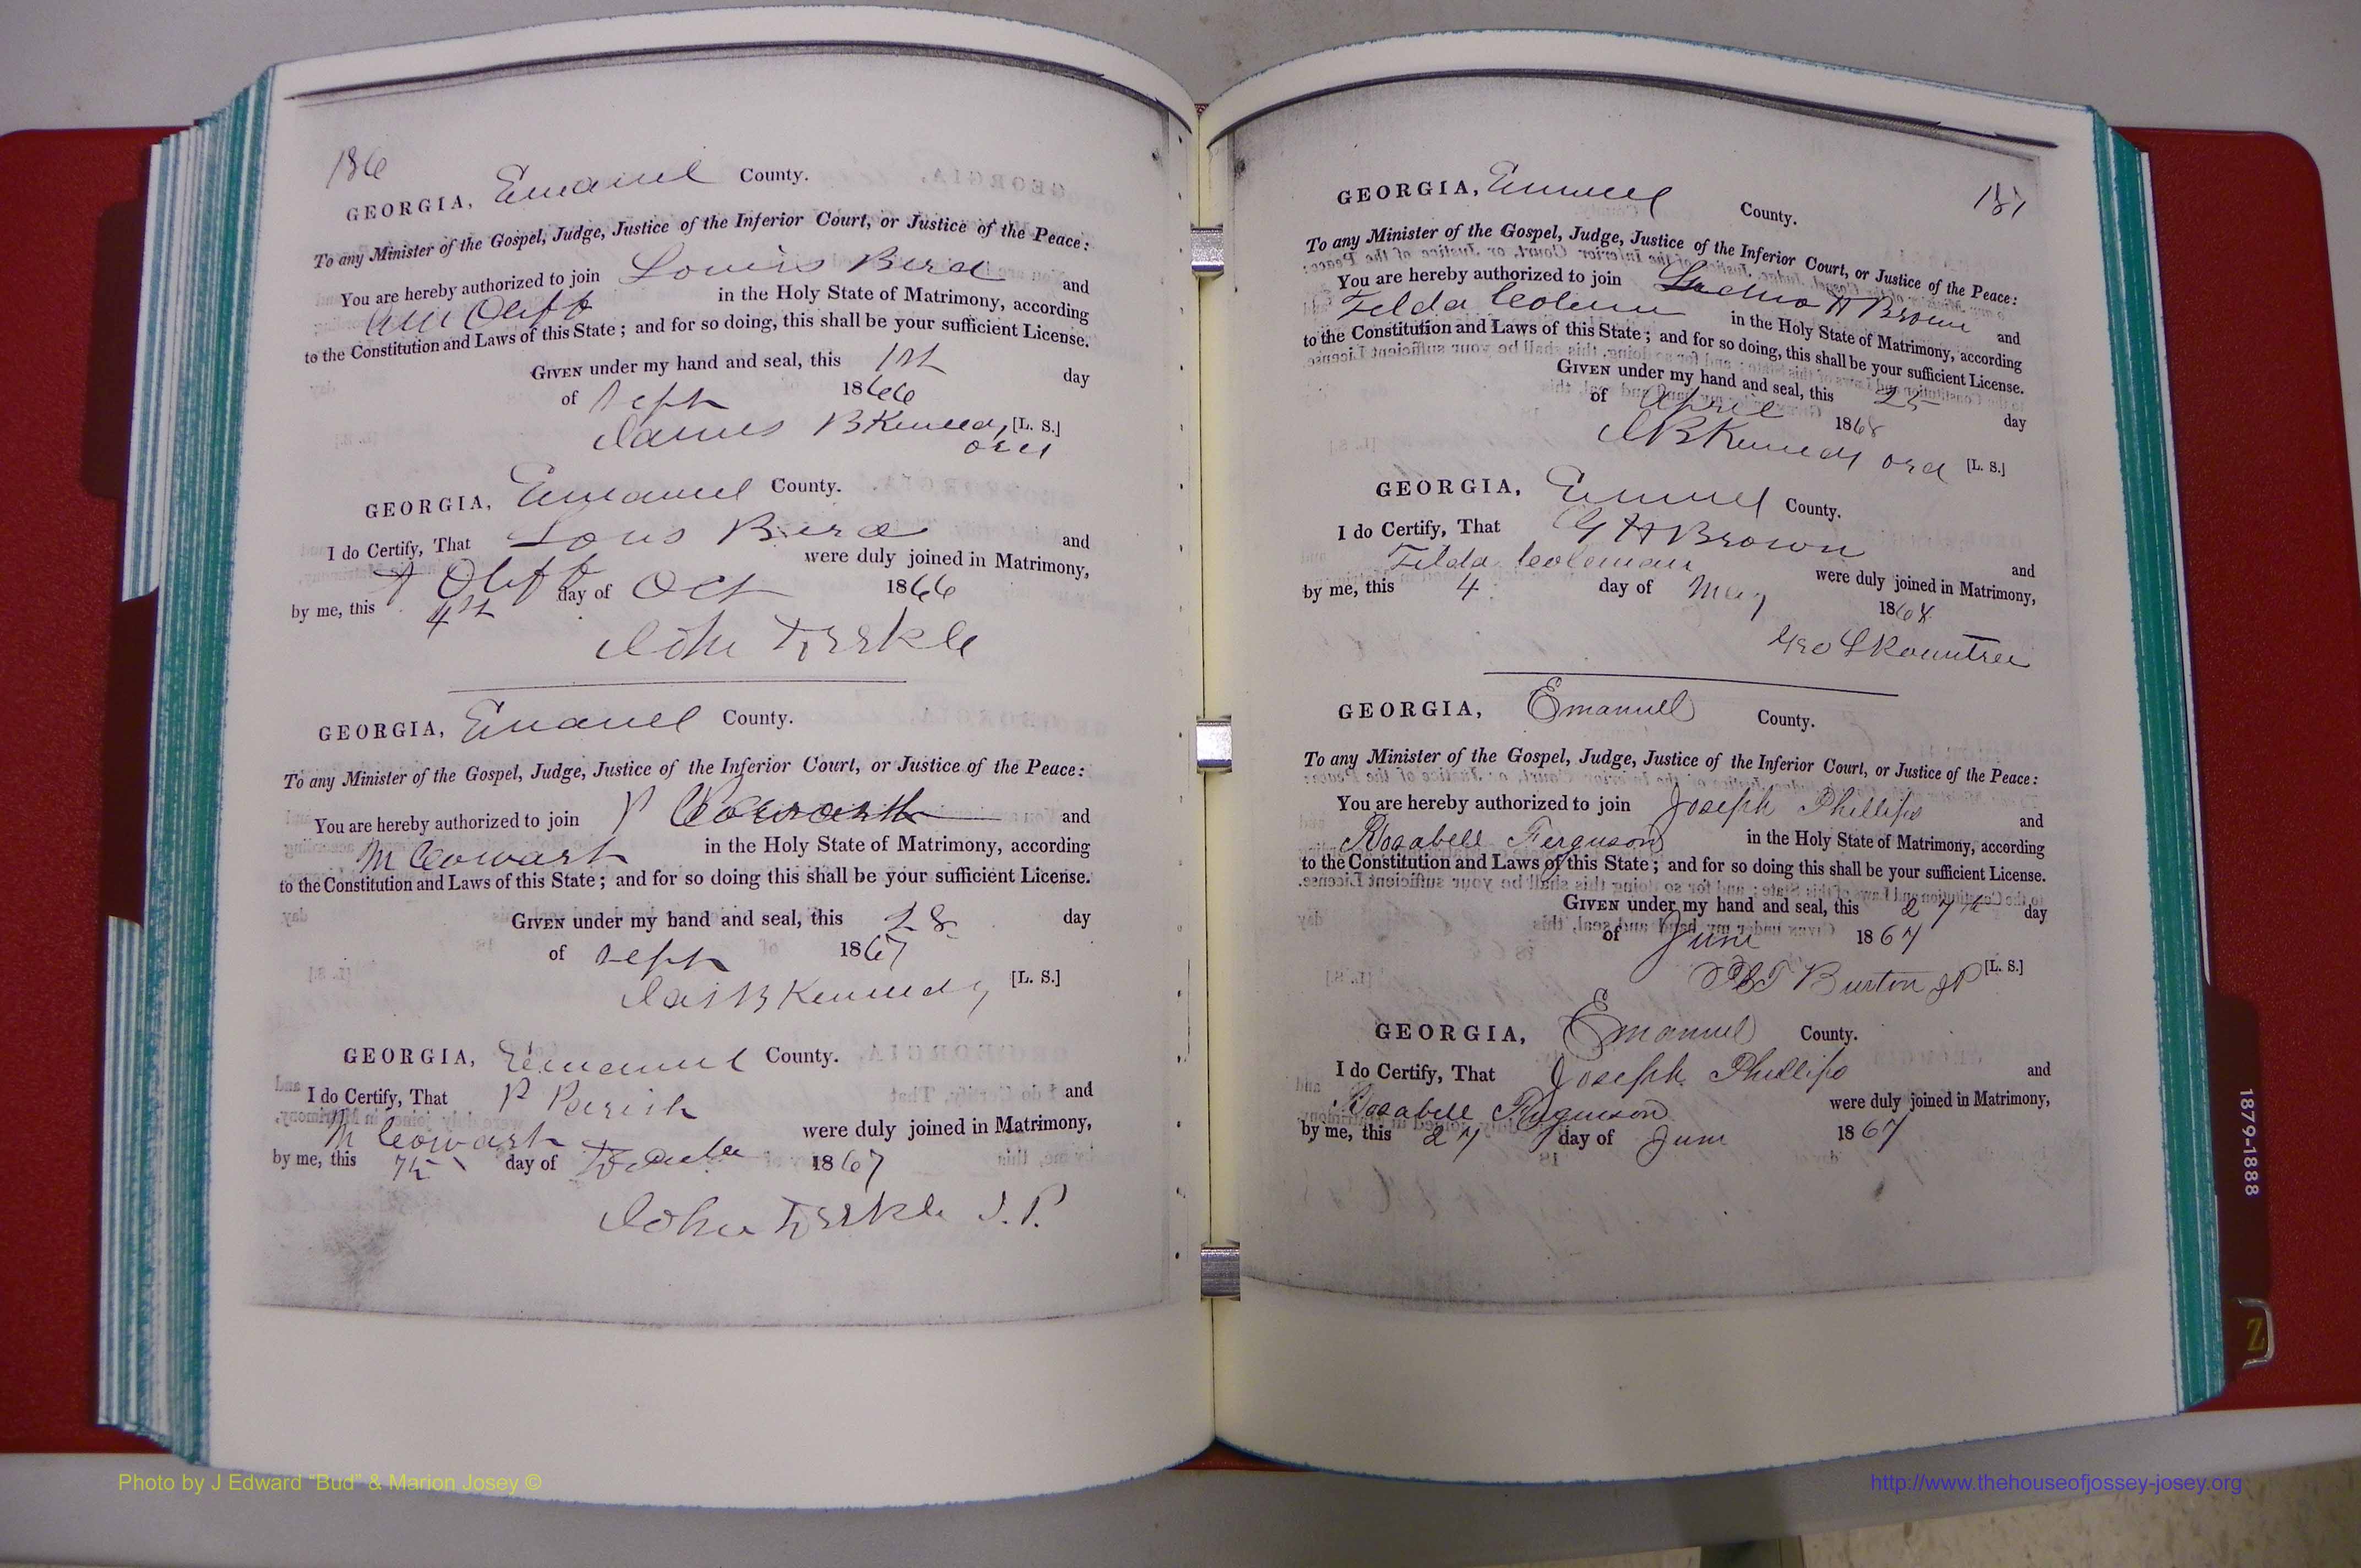 186
GEORGIA, Emanuel County.
To any Minister of the Gospel, Judge, Justice of the Inferior Court, or Justice of the Peace:
You are hereby authorized to join Louis Bird and
Ann Oliff in the Holy State of Matrimony, according
to the Constitution and Laws of this State; and for so doing, this shall be your sufficient License.
GIVEN under my hand and seal, this 1st day
of Sept 1866
James B Kennedy [L. S.]
Ord
GEORGIA, Emanuel County.
I do Certify, That Louis Bird and
A Oliff were duly joined in Matrimony,
by me, this 4th day of Oct 1866
John
GEORGIA, Emanuel County.
To any Minister of the Gospel, Judge, Justice of the Inferior Court, or Justice of the Peace:
You are hereby authorized to join P Cowart and
M Cowart in the Holy State of Matrimony, according
to the Constitution and Laws of this State; and for so doing this shall be your sufficient License.
GIVEN under my hand and seal, this 28 day
of Sept 1867
Jas B Kennedy [L. S.]
GEORGIA, Emanuel County.
I do Certify, That P Parish and
M Cowart were duly joined in Matrimony,
by me, this day of 1867
John J. P.
187
GEORGIA, Emanuel County.
To any Minister of the Gospel, Judge, Justice of the Inferior Court, or Justice of the Peace:
You are hereby authorized to join H Brown and
Telda in the Holy State of Matrimony, according
to the Constitution and Laws of this State; and for so doing, this shall be your sufficient License.
GIVEN under my hand and seal, this 25 day
of April 1868
J B Kennedy Ord [L. S.]
GEORGIA, Emanuel County.
I do Certify, That G H Brown and
Telda Coleman were duly joined in Matrimony,
by me, this 4 day of May 1868
Geo L Rountree
GEORGIA, Emanuel County.
To any Minister of the Gospel, Judge, Justice of the Inferior Court, or Justice of the Peace:
You are hereby authorized to join Joseph Phillips and
Rosabell Ferguson in the Holy State of Matrimony, according
to the Constitution and Laws of this State; and for so doing this shall be your sufficient License.
GIVEN under my hand and seal, this 27th day
of June 1867
Burton JP [L. S.]
GEORGIA, Emanuel County.
I do Certify, That Joseph Phillips and
Rosabell Ferguson were duly joined in Matrimony,
by me, this 27 day of June 1867
1879-1888
Z
Photo by J Edward “Bud” & Marion Josey ©
http://www.thehouseofjossey-josey.org